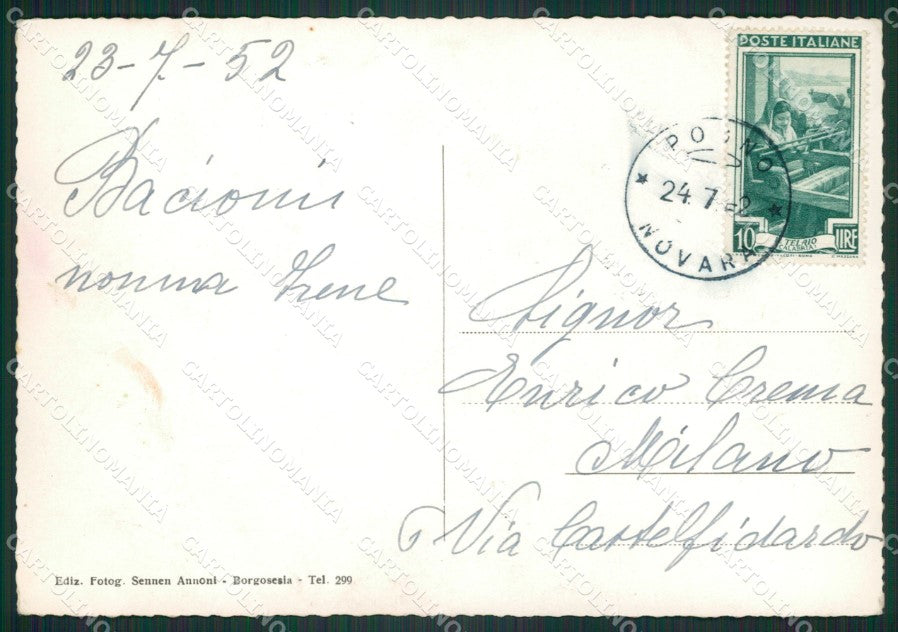 23-7-52
Bacioni
nonna Irene
POSTE ITALIANE
10 LIRE
TELAIO
POGNO
24.7.52
NOVARA
Signor
Enrico Crema
Milano
Via Castelfidardo
Ediz. Fotog. Sennen Annoni - Borgosesia - Tel. 299
CARTOLINOMANIA